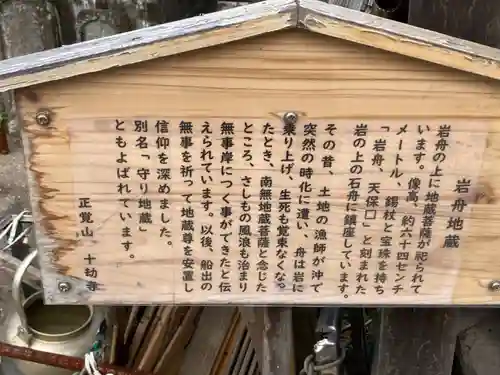 岩舟地蔵
岩舟の上に地蔵菩薩が祀られて
います。像高、約六十四センチ
メートル、錫杖と宝珠を持ち
「岩舟、天保□」と刻まれた
岩の上の石舟に鎮座しています。
その昔、土地の漁師が沖で
突然の時化に遭い、舟は岩に
乗り上げ、生死も覚束なくな。
たとき、南無地蔵菩薩と念じた
ところ、さしもの風浪も治まり
無事岸につく事ができたと伝
えられています。以後、船出の
無事を祈って地蔵尊を安置し
信仰を深めました。
別名「守り地蔵」
ともよばれています。
正覚山 十劫寺